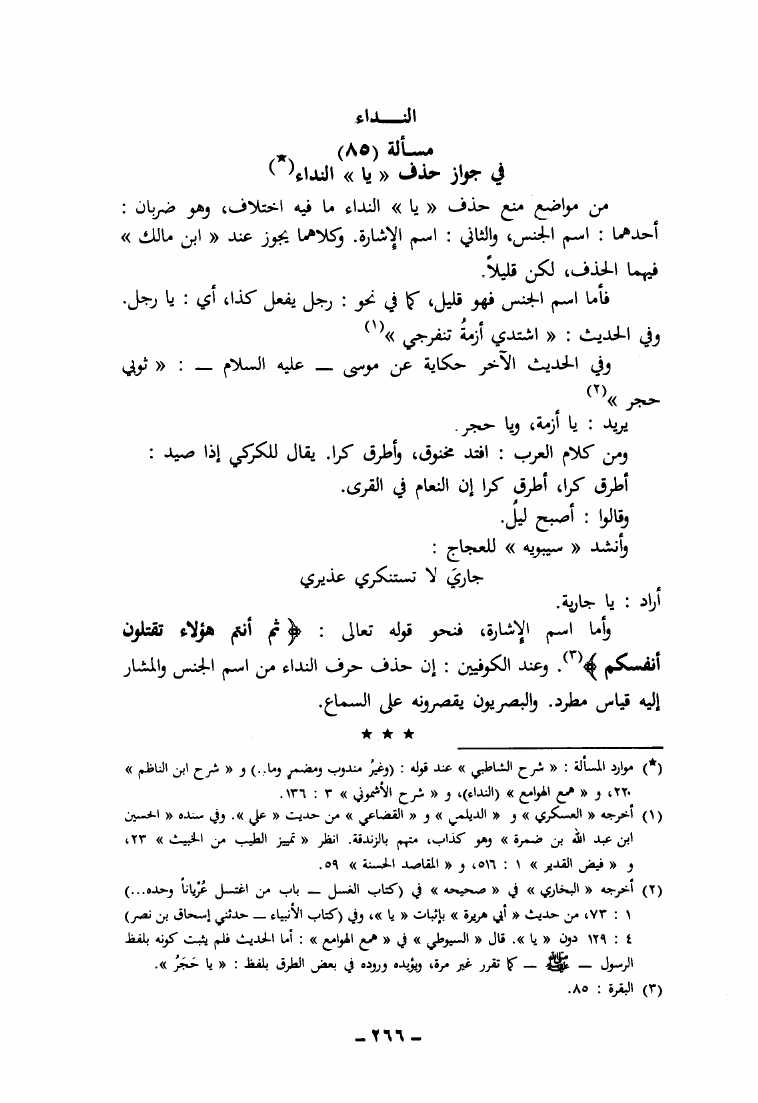 النـــداء
مسألة (٨٥)
في جواز حذف « يا » النداء(★)
من مواضع منع حذف « يا » النداء ما فيه اختلاف، وهو ضربان :
أحدهما : اسم الجنس، والثاني : اسم الإشارة. وكلاهما يجوز عند « ابن مالك »
فيهما الحذف، لكن قليلاً.
فأما اسم الجنس فهو قليل، كما في نحو : رجل يفعل كذا، أي : يا رجل.
وفي الحديث : « اشتدي أزمةُ تنفرجي »(١)
وفي الحديث الآخر حكاية عن موسى — عليه السلام — : « ثوبي
حجر »(٢)
يريد : يا أزمة، ويا حجر.
ومن كلام العرب : افتد مخنوق، وأطرق كرا. يقال للكركي إذا صيد :
أطرق كرا، أطرق كرا إن النعام في القرى.
وقالوا : أصبح ليلُ.
وأنشد « سيبويه » للعجاج :
جاريَ لا تستنكري عذيري
أراد : يا جارية.
وأما اسم الإشارة، فنحو قوله تعالى : ﴿ ثم أنتم هؤلاء تقتلون
أنفسكم ﴾(٣). وعند الكوفيين : إن حذف حرف النداء من اسم الجنس والمشار
إليه قياس مطرد. والبصريون يقصرونه على السماع.
★ ★ ★
(★) موارد المسألة : « شرح الشاطبي » عند قوله : (وغيرُ مندوب ومضمرٍ وما..) و « شرح ابن الناظم »
٢٢٠، و « همع الهوامع » (النداء)، و « شرح الأشموني » ٣ : ١٣٦.
(١) أخرجه « العسكري » و « الديلمي » و « القضاعي » من حديث « علي ». وفي سنده « الحسين
ابن عبد الله بن ضمرة » وهو كذاب، متهم بالزندقة. انظر « تمييز الطيب من الخبيث » ٢٣،
و « فيض القدير » ١ : ٥١٦، و « المقاصد الحسنة » ٥٩.
(٢) أخرجه « البخاري » في « صحيحه » في (كتاب الغسل — باب من اغتسل عُرْياناً وحده...)
١ : ٧٣، من حديث « أبي هريرة » بإثبات « يا »، وفي (كتاب الأنبياء — حدثني إسحاق بن نصر)
٤ : ١٢٩ دون « يا ». قال « السيوطي » في « همع الهوامع » : أما الحديث فلم يثبت كونه بلفظ
الرسول — ﷺ — كما تقرر غير مرة، ويؤيده وروده في بعض الطرق بلفظ : « يا حَجَرُ ».
(٣) البقرة : ٨٥.
- ٢٦٦ -